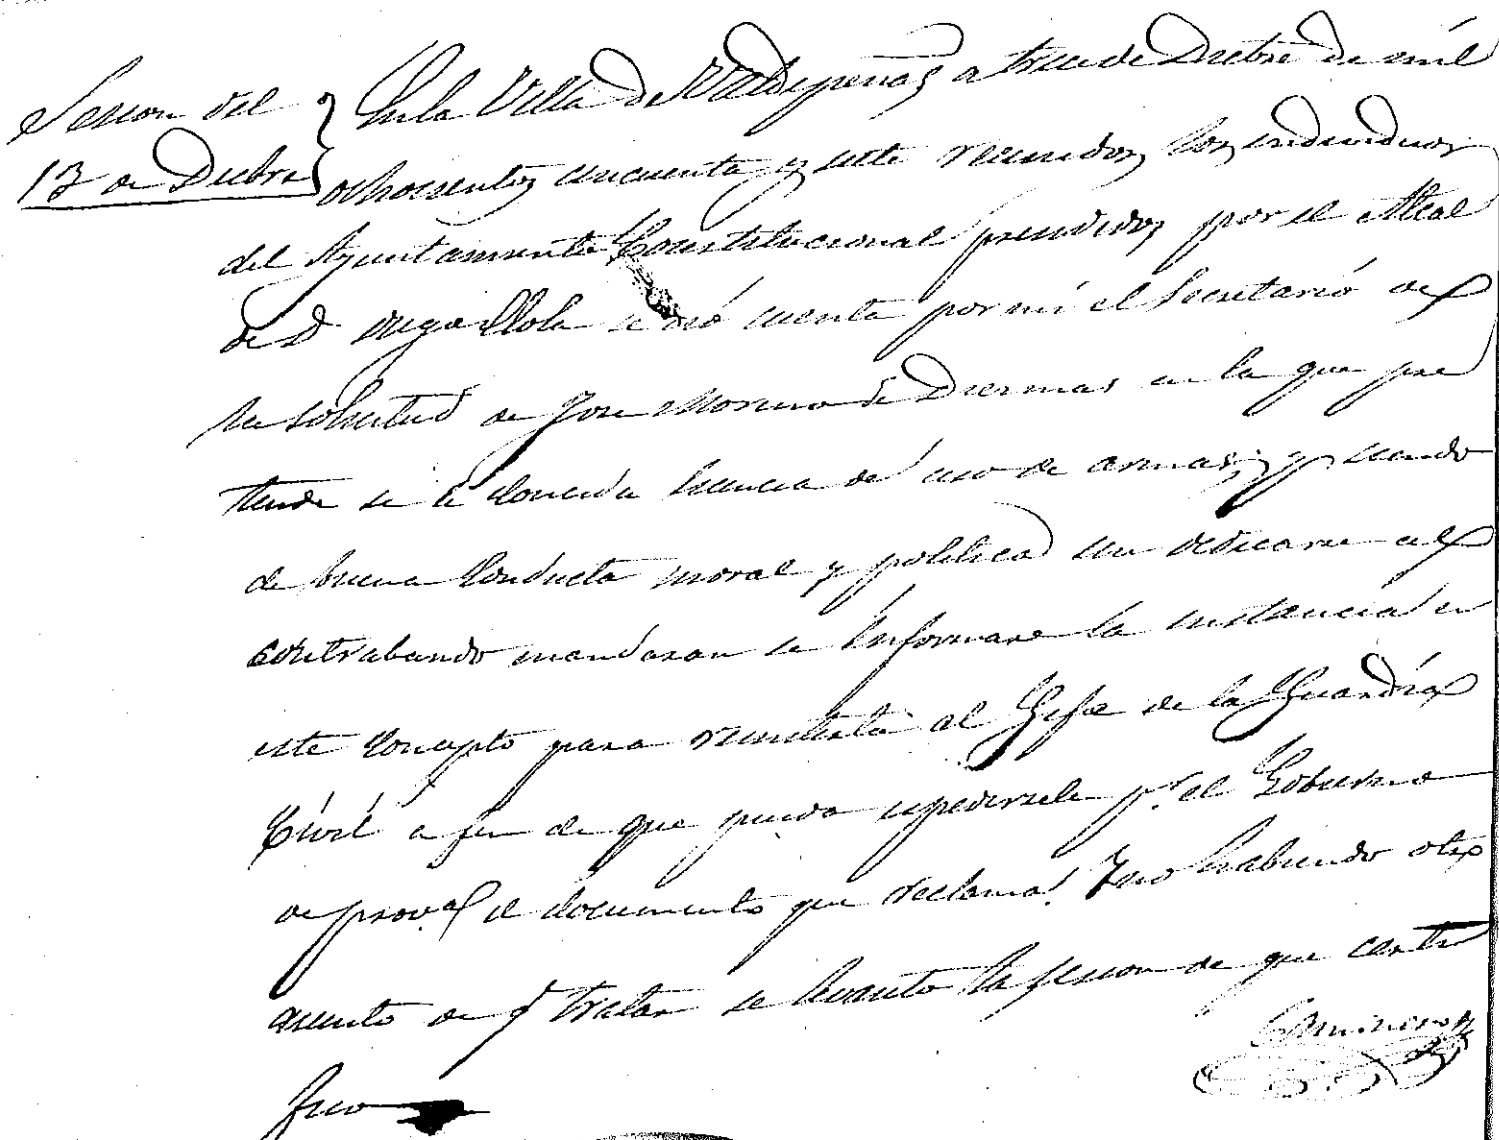 Sesion del
13 de Diciebre
En la Villa de Valdepeñas a trece de Diciebre de mil
ochocientos cincuenta y siete reunidos los individuos
del Ayuntamiento Constitucional presididos por el Alcal
de D. se dió cuenta por mi el Secretario de
la solicitud de Jose Moreno de Diermas en la que pre
tende se le conceda licencia del uso de armas; y siendo
de buena conducta moral y politica sin dedicarse al
contrabando mandaron se informase la instancia en
este concepto para remitirla al Gefe de la Guardia
Civil a fin de que pueda espedirsele pr. el Gobierno
de proval. el documento que reclama. Y no habiendo otro
asunto de q. tratar se levantó la sesion de que certi
fico